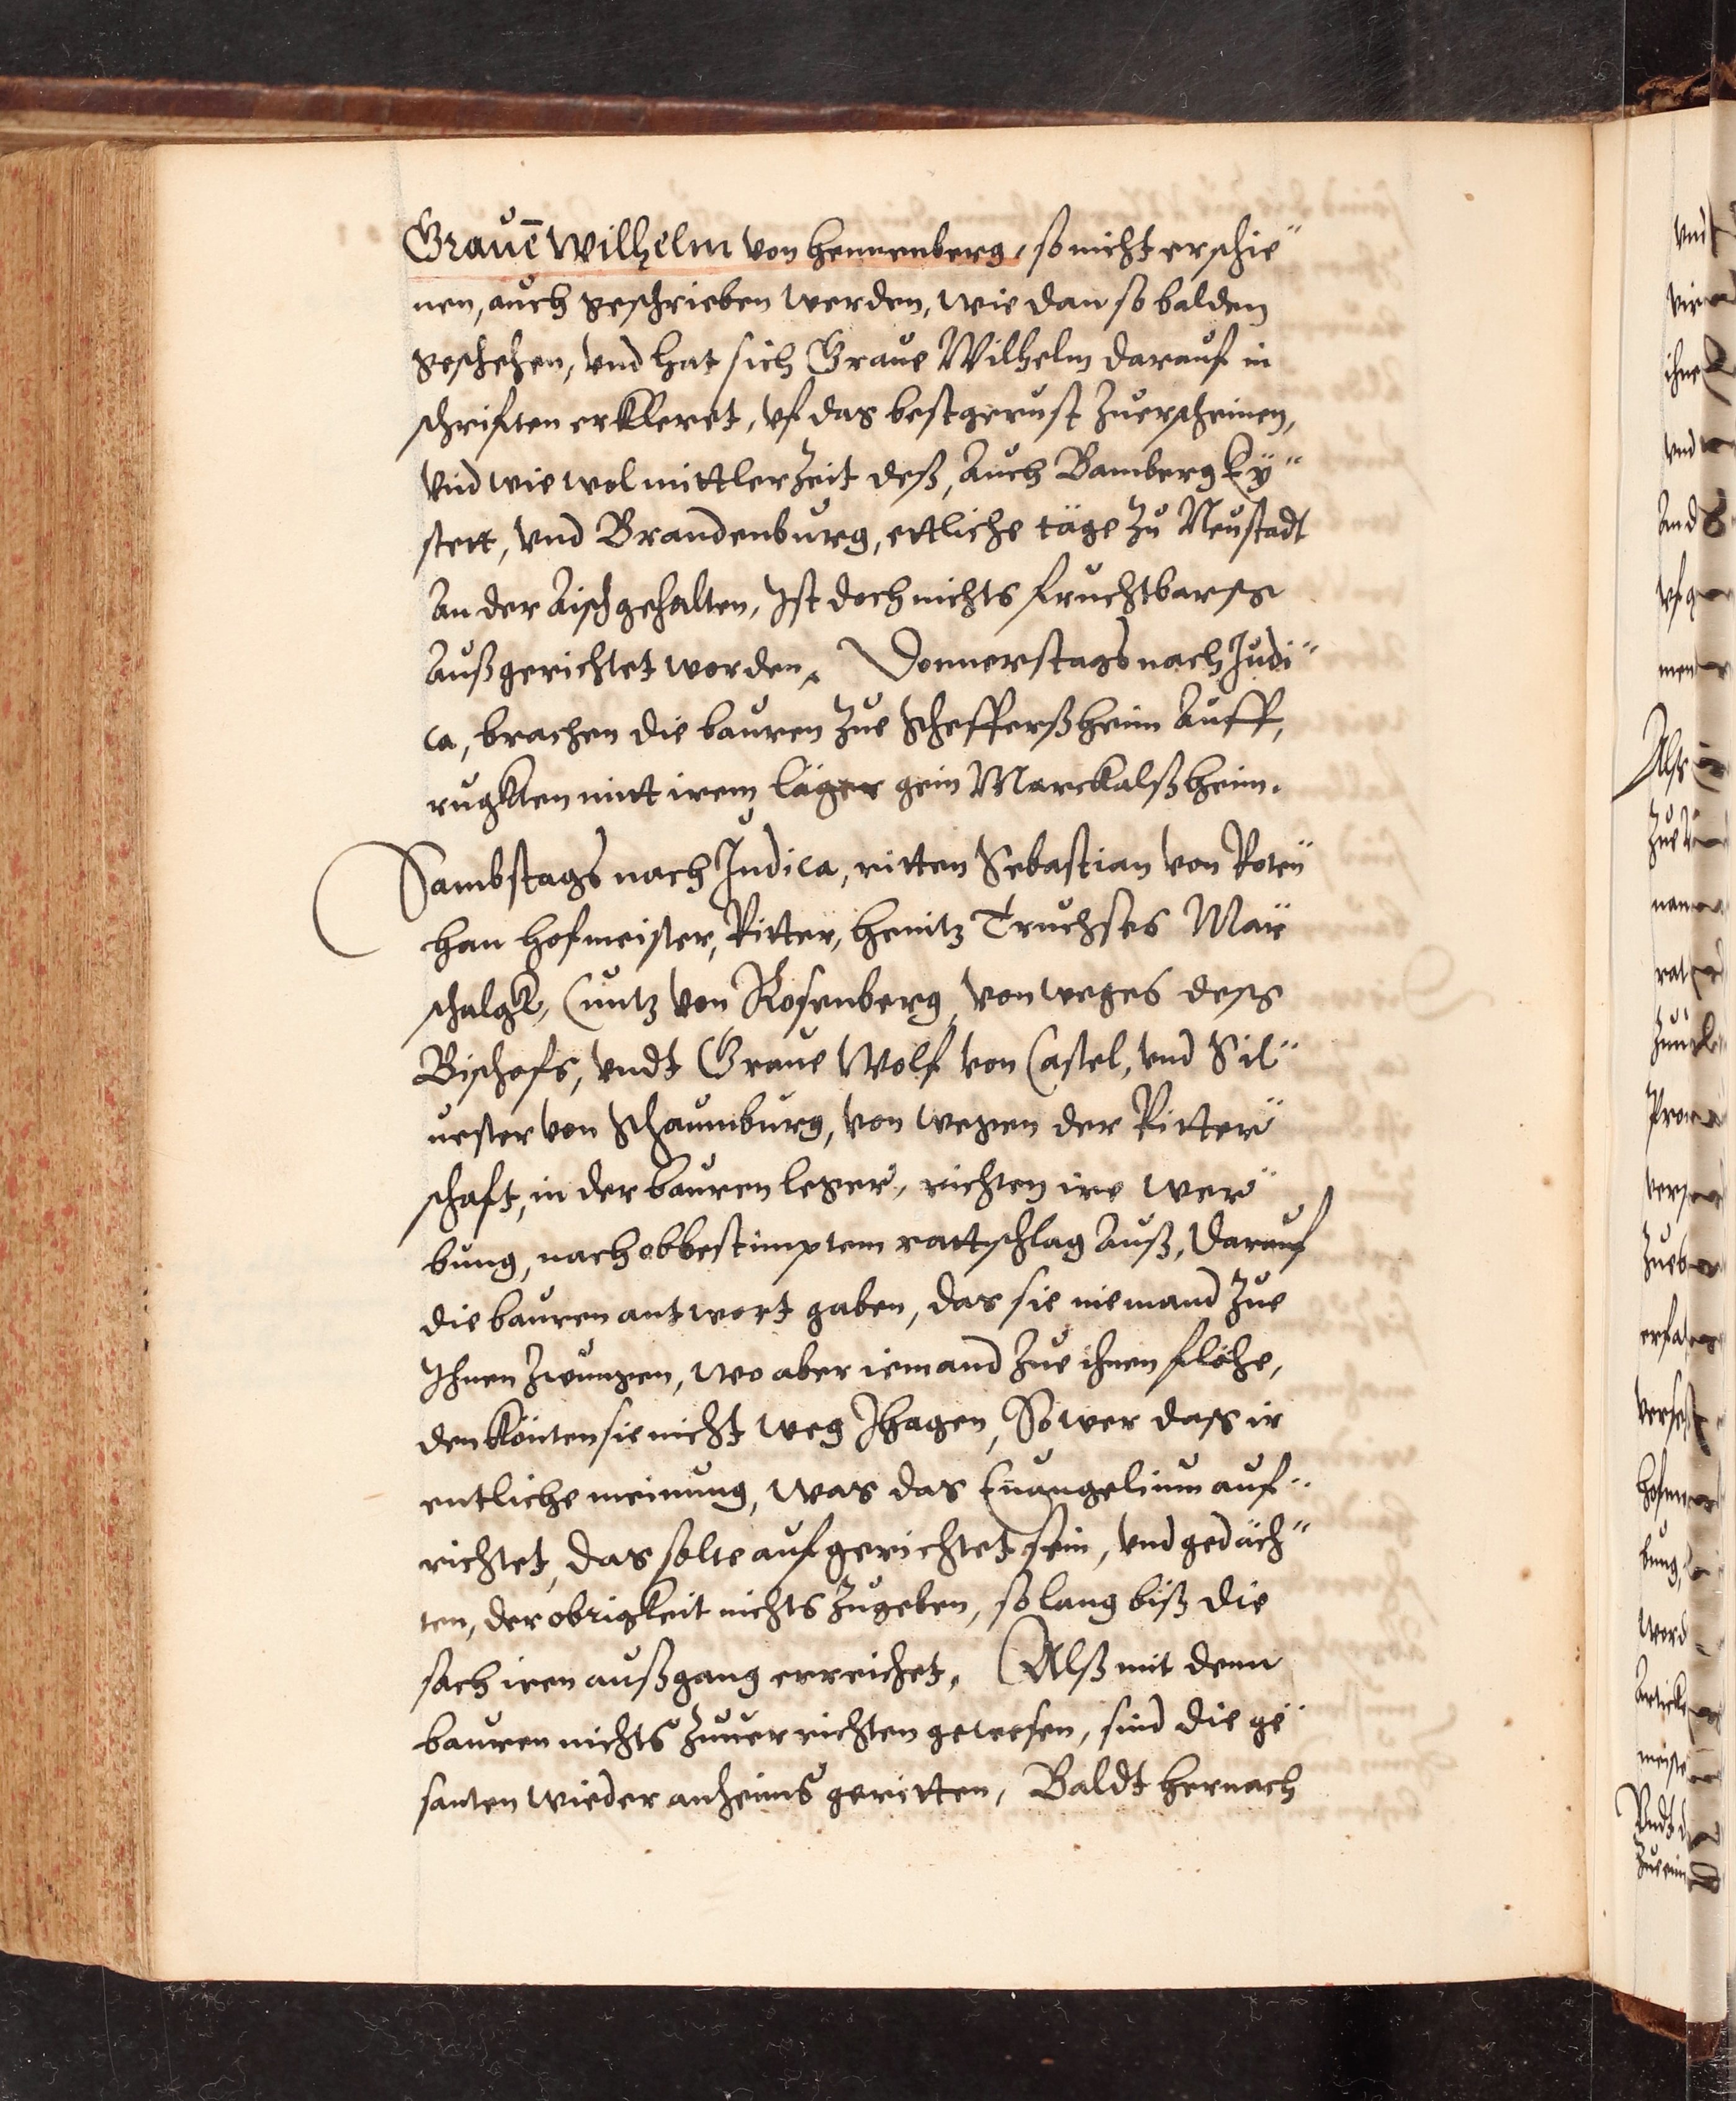 Grauē Wilhelm von hennenberg, so nicht erschie"
nen, auch geschrieben werden, wie dan so balden
geschehen, vnd hat sich Graue Wilhelm darauf in
schriften erkleret, vf das best gerust zuerscheinen,
Vnd wie wol mittler Zeit deß, Auch Bamberg Ey"
stett, vnd Brandenburg, ettliche täge zu Neustadt
An der Aisch gehalten, Ist doch nichts fruchtbarss
Außgerichtet worden. Donnerstags nach Judi"
ca, brachen die bauren zue Scheffersßheim Auff,
rugkten mitt irem läger gein Marckalßheim.
Sambstags nach Judica, ritten Sebastian von Roten"
han hofmeister, Ritter, heintz Truchses Mar"
schalgk, Cuntz von Rosenberg, von weges dess
Bischofs, vndt Graue Wolf von Castel, vnd Sil"
uester von Schaumburg, von wegen der Ritter"
schaft, in der bauren leger, richten ire wer"
bung, nach obbestimptem rattschlag Auß, Darauf
die bauren antwort gaben, das sie niemand zue
Ihnen zwungen, wo aber iemand zue ihnen flöhe,
den könten sie nicht weg Jhagen, So wer dass ir
entliche meinung, was das Euangelium auf"
richtet, das solte aufgerichtet sein, vnd gedäch"
ten, der obrigkeit nichts zugeben, so lang biß die
sach iren außgang erreichet. Alß mit denn
bauren nichts zuuerrichten gewesen, sind die ge"
santen wieder anheims geritten, Baldt hernach